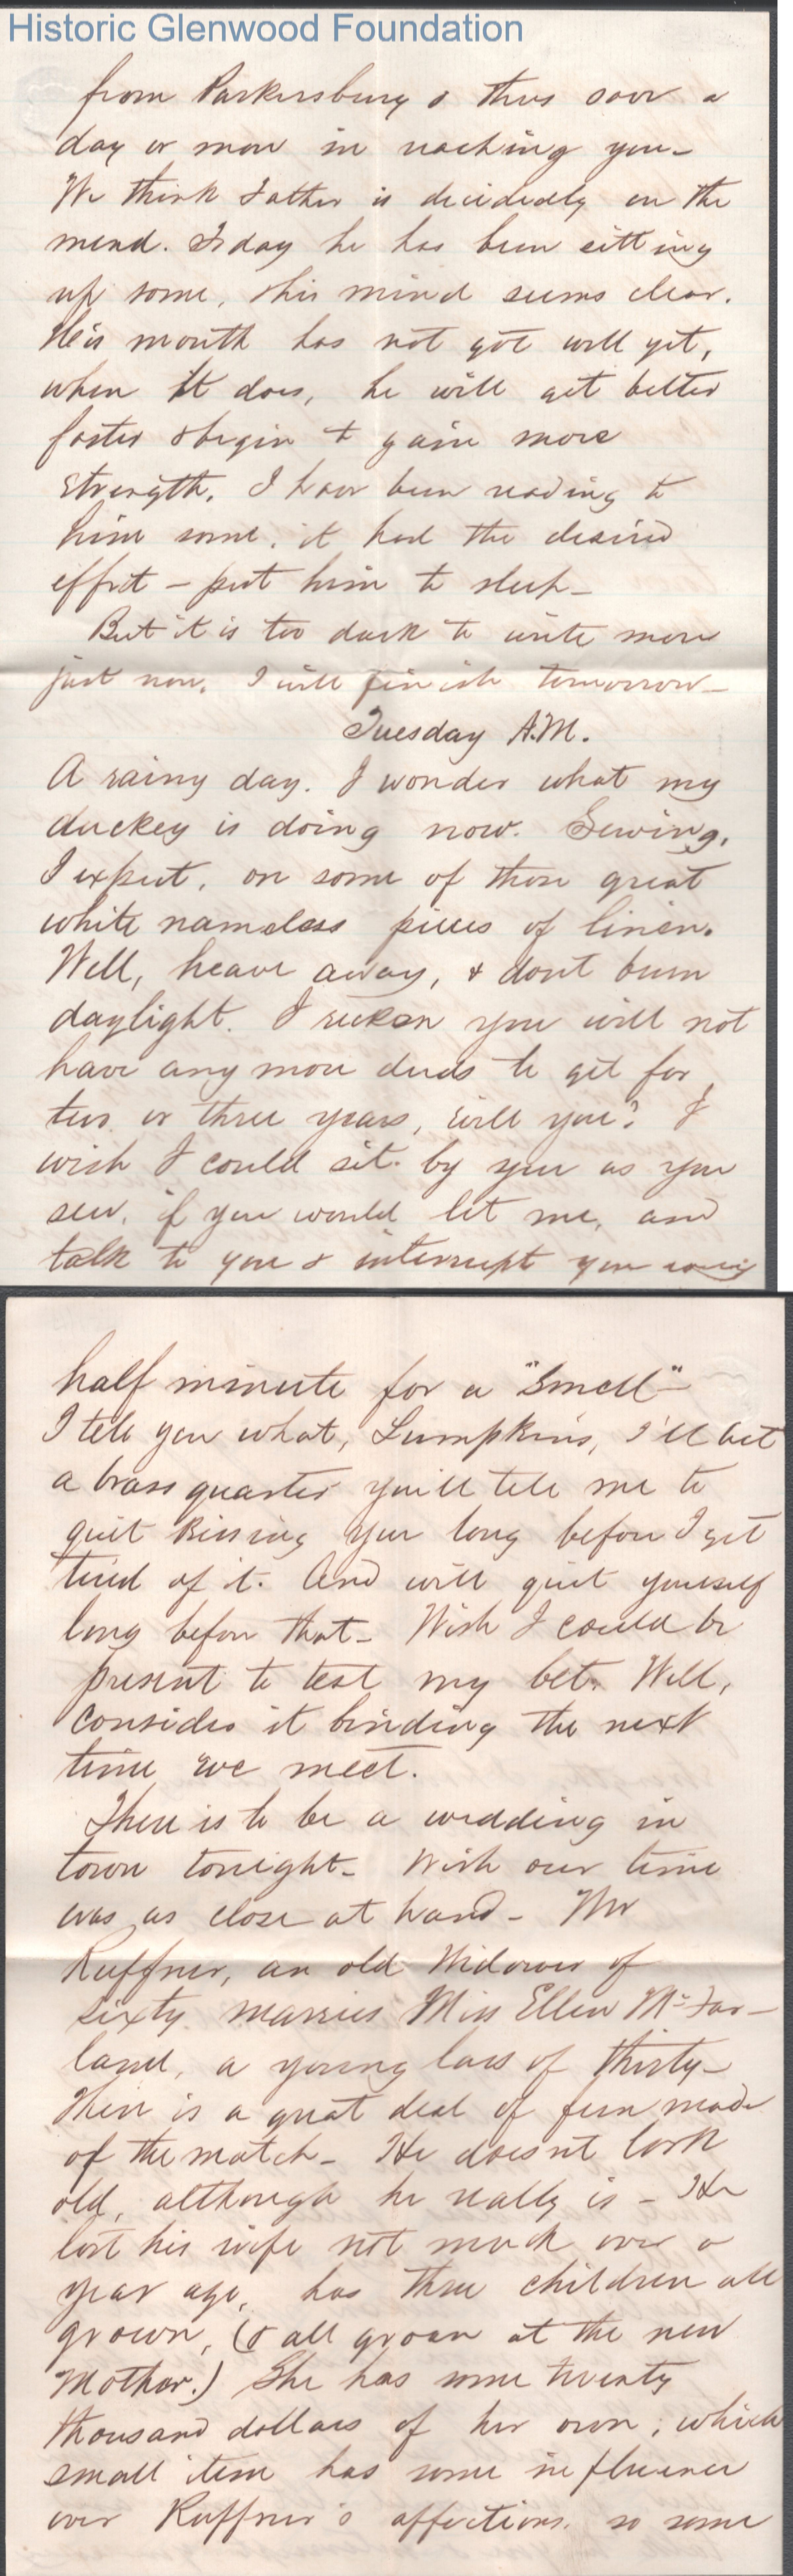 Historic Glenwood Foundation
from Parkersburg & thus save a
day or more in reaching you -
We think Father is decidedly on the
mend. Today he has been sitting
up some, & his mind seems clear.
His mouth has not got well yet,
when it does, he will get better
faster & begin to gain more
strength. I have been reading to
him some. it had the desired
effect - put him to sleep -
But it is too dark to write more
just now. I will finish tomorrow -
Tuesday A.M.
A rainy day. I wonder what my
duckey is doing now. Sewing,
I expect, on some of those great
white nameless pieces of linen.
Well, heave away, & dont burn
daylight. I reckon you will not
have any more duds to get for
two or three years, will you? I
wish I could sit by you as you
sew, if you would let me, and
talk to you & interrupt you every
half minute for a "smell" -
I tell you what, Lumpkins, I'll bet
a brass quarter you'll tell me to
quit kissing you long before I get
tired of it. And will quit yourself
long before that - Wish I could be
present to test my bet. Well,
consider it binding the next
time we meet.
There is to be a wedding in
town tonight - Wish our time
was as close at hand - Mr
Ruffner, an old Widower of
sixty marries Miss Ellen McFar-
land, a young lass of thirty -
There is a great deal of fun made
of the match - He doesnt look
old, although he really is - He
lost his wife not much over a
year ago, has three children all
grown, (& all groan at the new
Mother.) She has some twenty
thousand dollars of her own, which
small item has some influence
over Ruffner's affections, so some